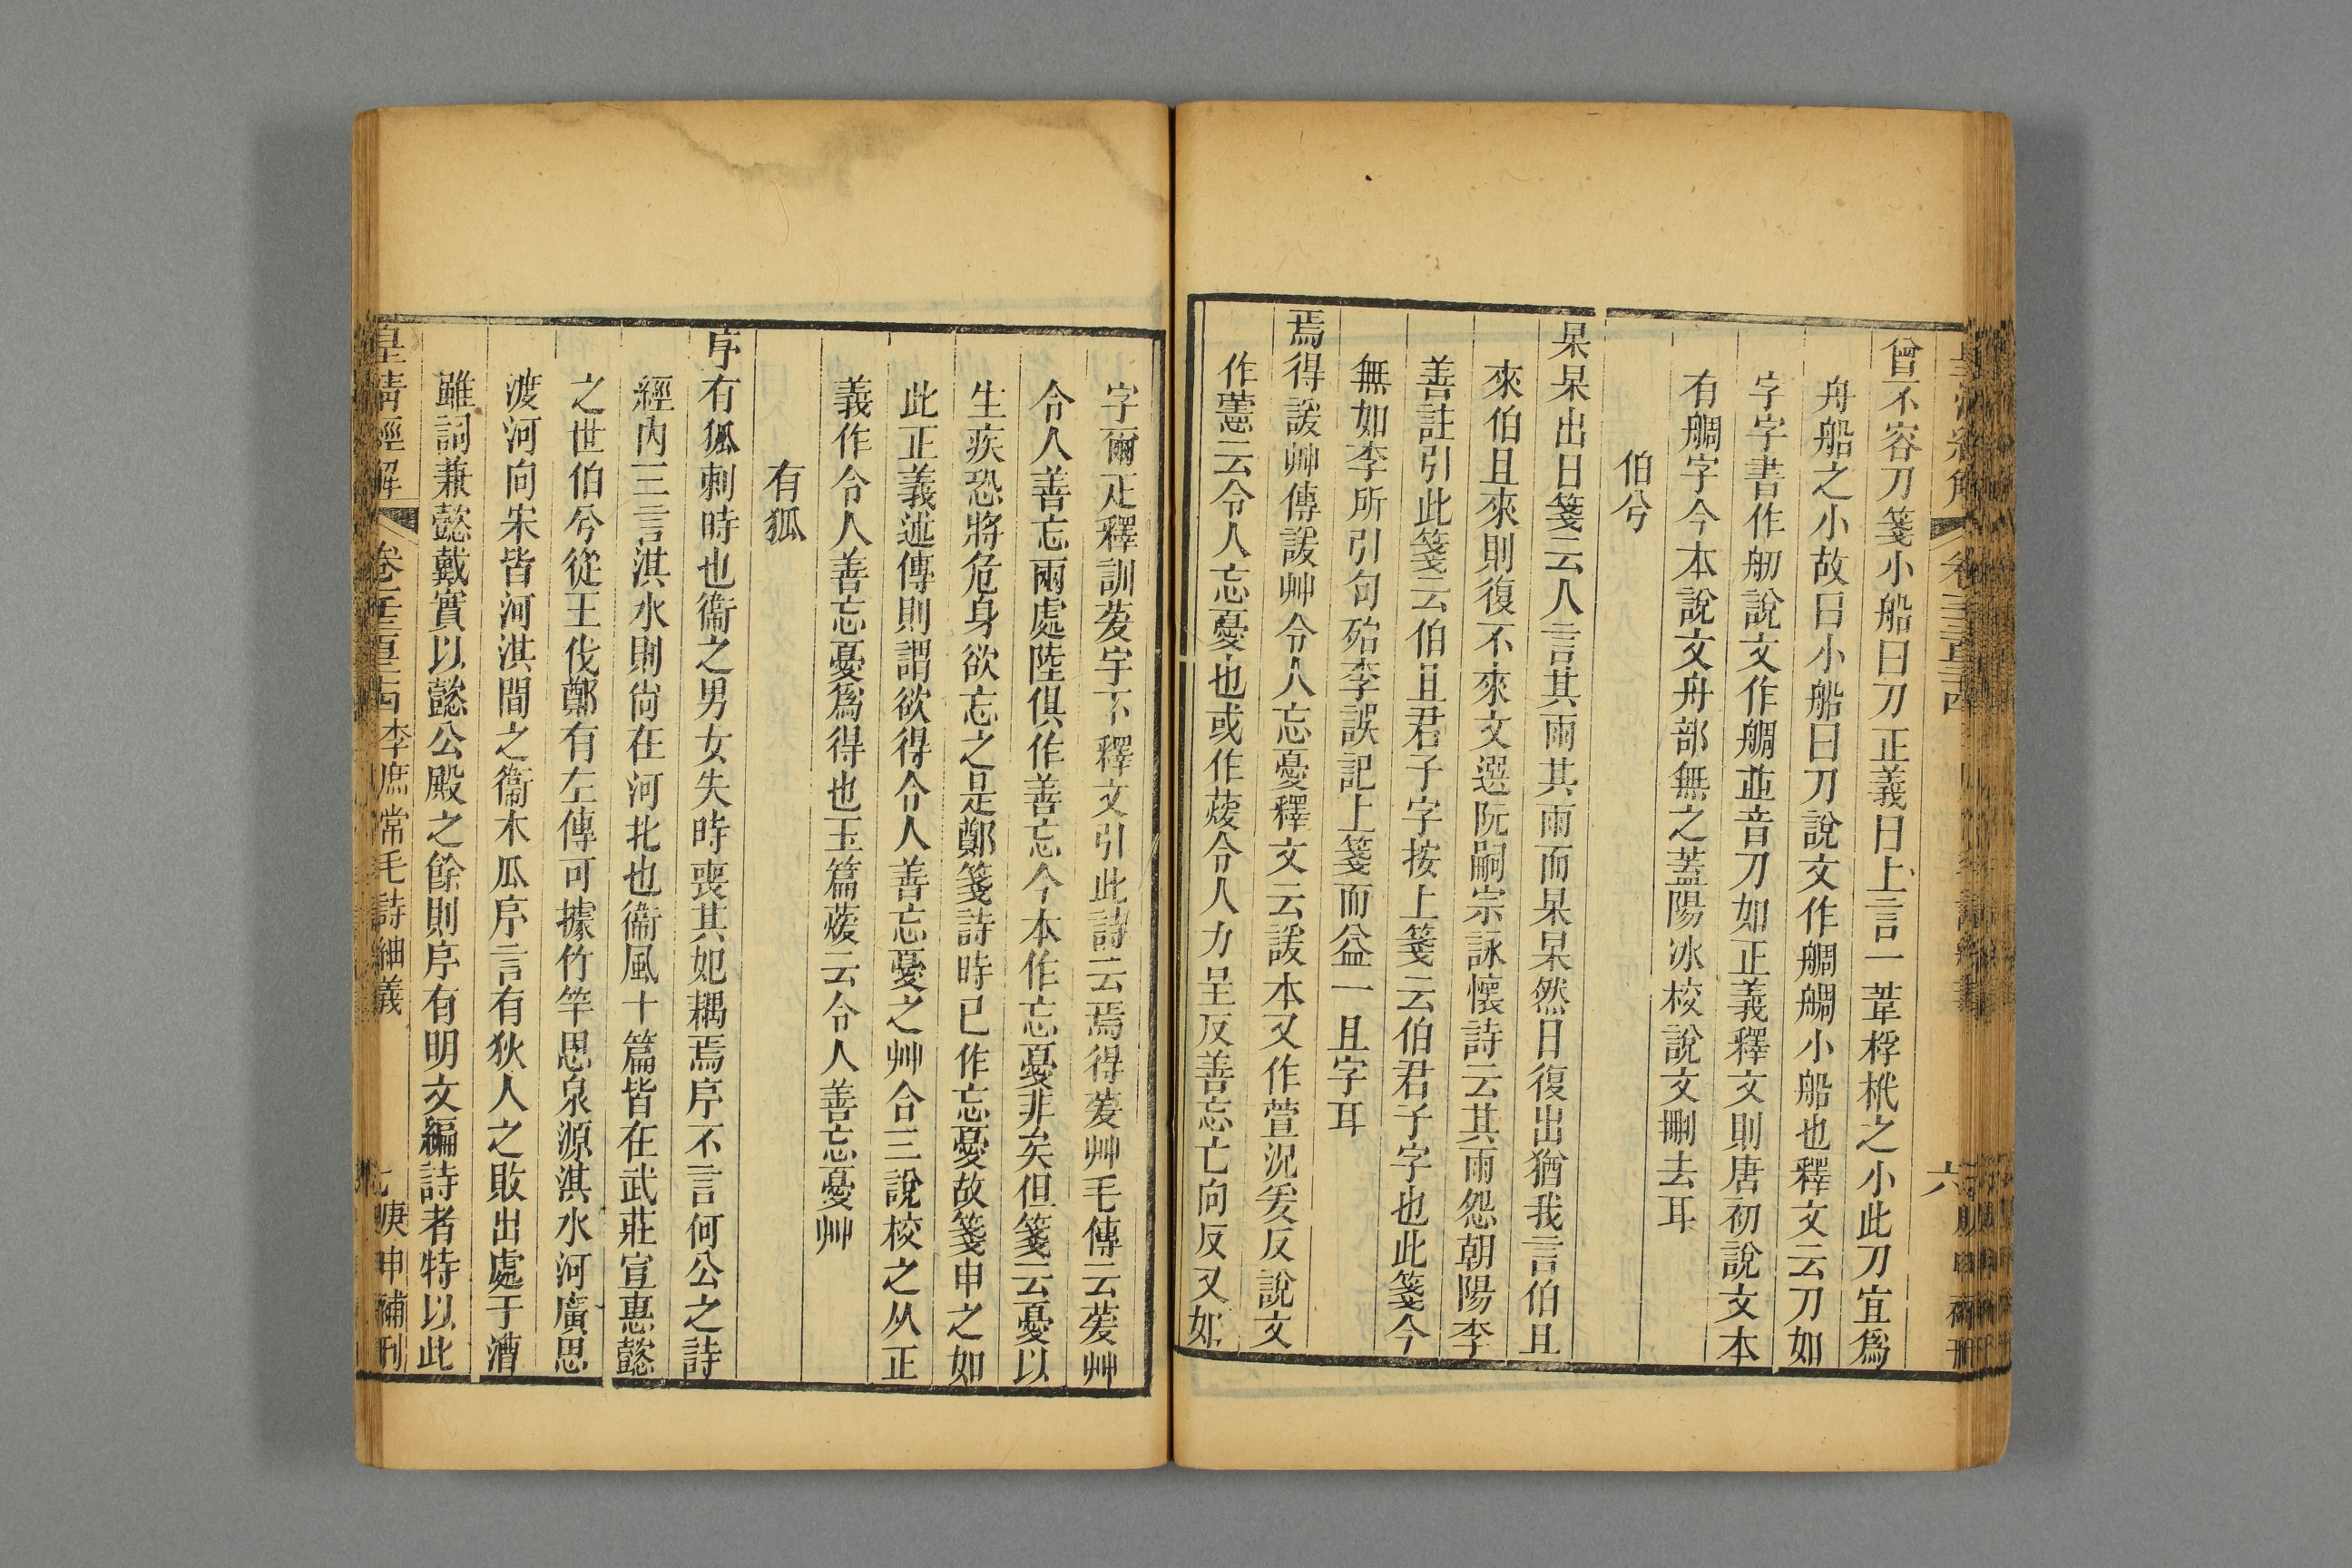 曾不容刀箋小船曰刀正義曰上言一葦桴栰之小此刀宜爲
舟船之小故曰小船曰刀說文作鯛鯛小船也釋文云刀如
字字書作舠說文作鯛並音刀如正義釋文則唐初說文本
有鯛字今本說文舟部無之蓋陽冰校說文刪去耳
伯兮
杲杲出日箋云人言其雨其雨而杲杲然日復出猶我言伯且
來伯且來則復不來文選阮嗣宗詠懷詩云其雨怨朝陽李
善註引此箋云伯且君子字按上箋云伯君子字也此箋今
無如李所引句殆李誤記上箋而益一且字耳
焉得諼艸傳諼艸令人忘憂釋文云諼本又作萱況爰反說文
作藼云令人忘憂也或作蕿令人力呈反善忘亡向反又如
字爾疋釋訓萲字下釋文引此詩云焉得萲艸毛傳云萲艸
令人善忘爾處陸俱作善忘今本作忘憂非矣但箋云憂以
生疾恐將危身欲忘之是鄭箋詩時已作忘憂故箋申之如
此正義述傳則謂欲得令人善忘憂之艸合三說校之从正
義作令人善忘憂爲得也玉篇蕿云令人善忘憂艸
有狐
序有狐刺時也衞之男女失時喪其妃耦焉序不言何公之詩
經內三言淇水則尙在河北也衞風十篇皆在武莊宣惠懿
之世伯兮從王伐鄭有左傳可據竹竿思泉源淇水河廣思
渡河向宋皆河淇間之衞木瓜序言有狄人之敗出處于漕
雖詞兼懿戴實以懿公殿之餘則序有明文編詩者特以此
皇清經解 李庶常毛詩紬義 七 庚申補刊